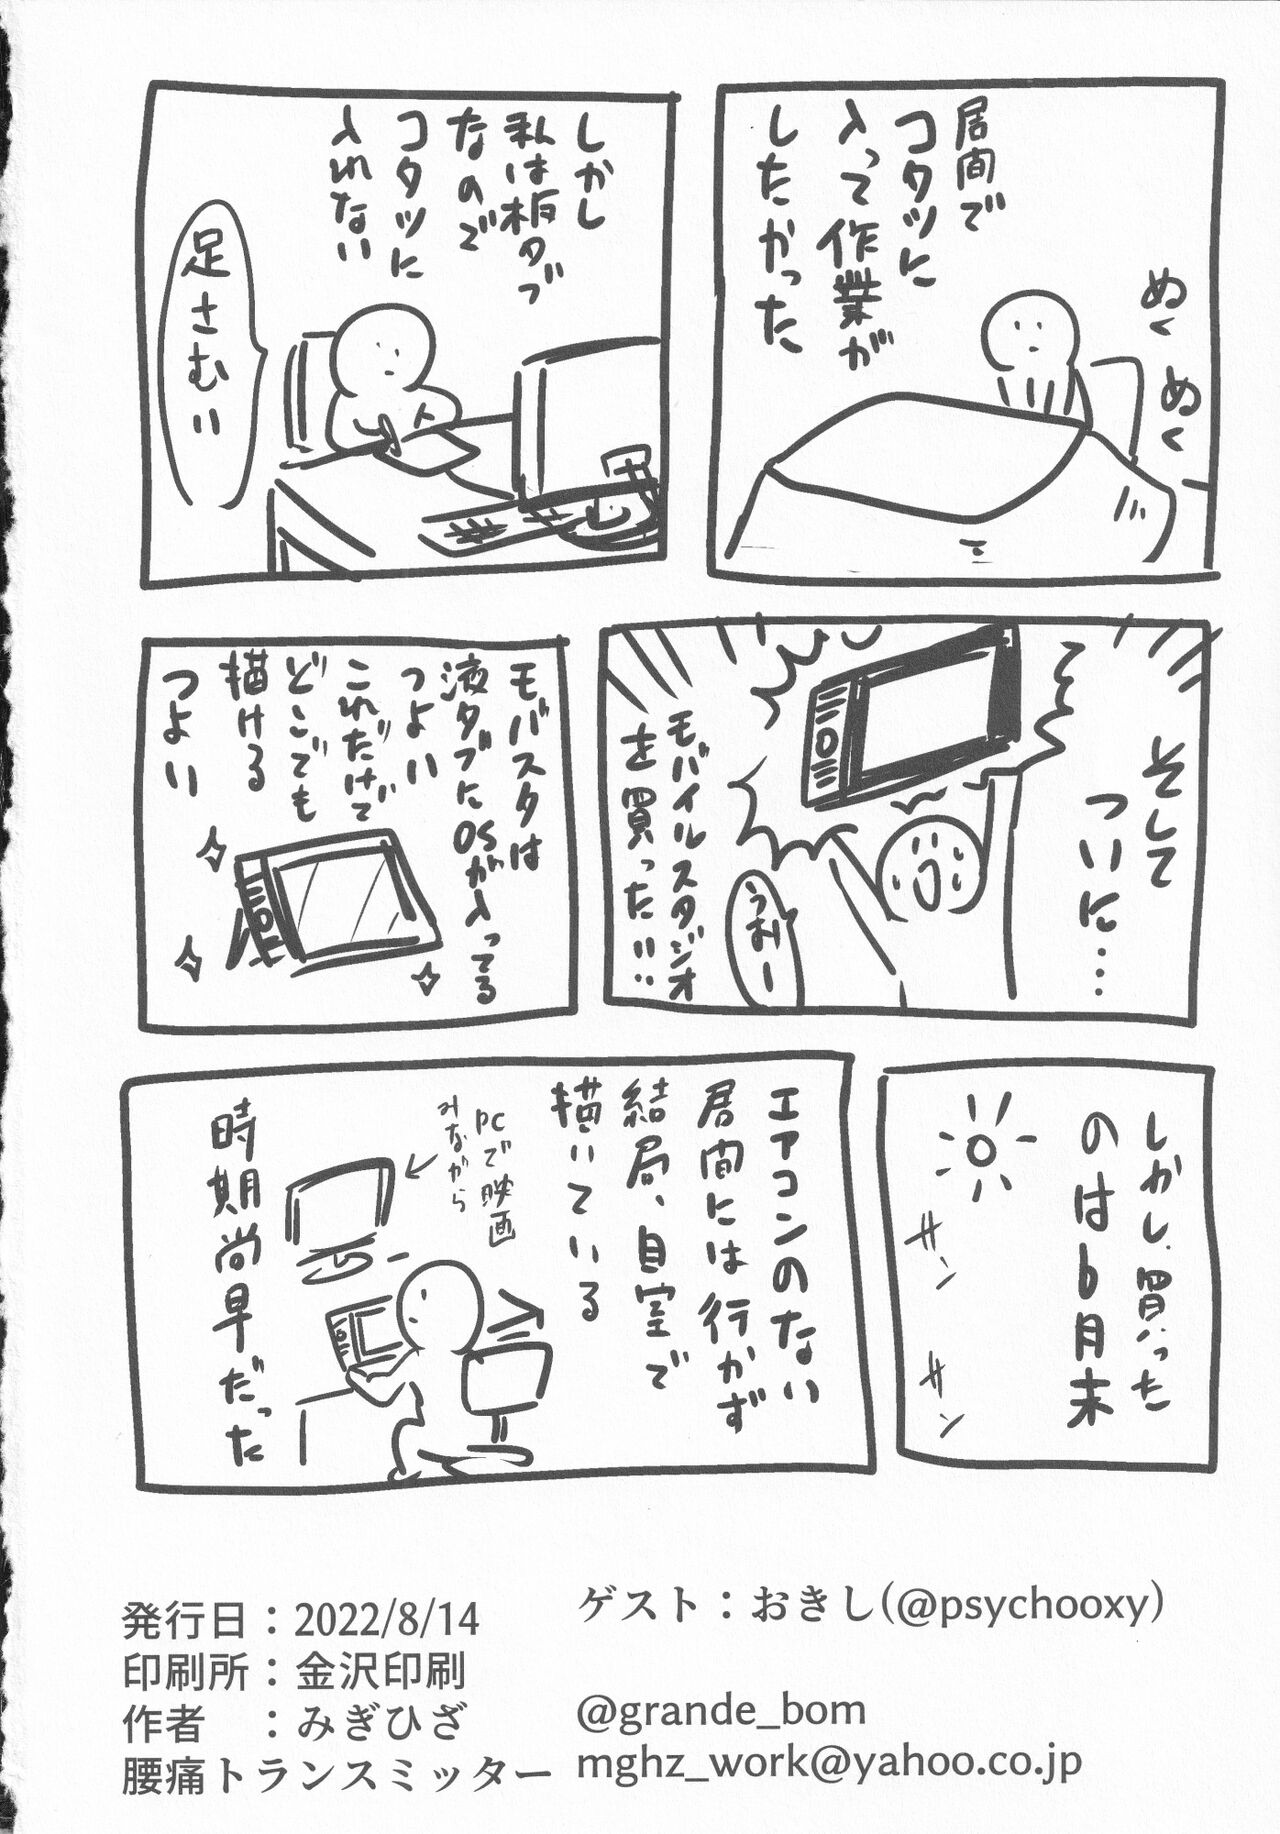 居間で
コタツに
入って作業が
したかった
ぬく
ぬく
しかし
私は板タブ
なので
コタツに
入れない
足さむい
そして
ついに…
モバイルスタジオ
を買った!!
うおー
モバスタは
つよい
液タブにOSが入ってる
これだけで
どこでも
描ける
つよい
しかし、買った
のは6月末
サン
サン
エアコンのない
居間には行かず
結局、自室で
描いている
PCで映画
みながら
時期尚早だった
発行日：2022/8/14
印刷所：金沢印刷
作者　：みぎひざ
腰痛トランスミッター
ゲスト：おきし(@psychooxy)
@grande_bom
mghz_work@yahoo.co.jp